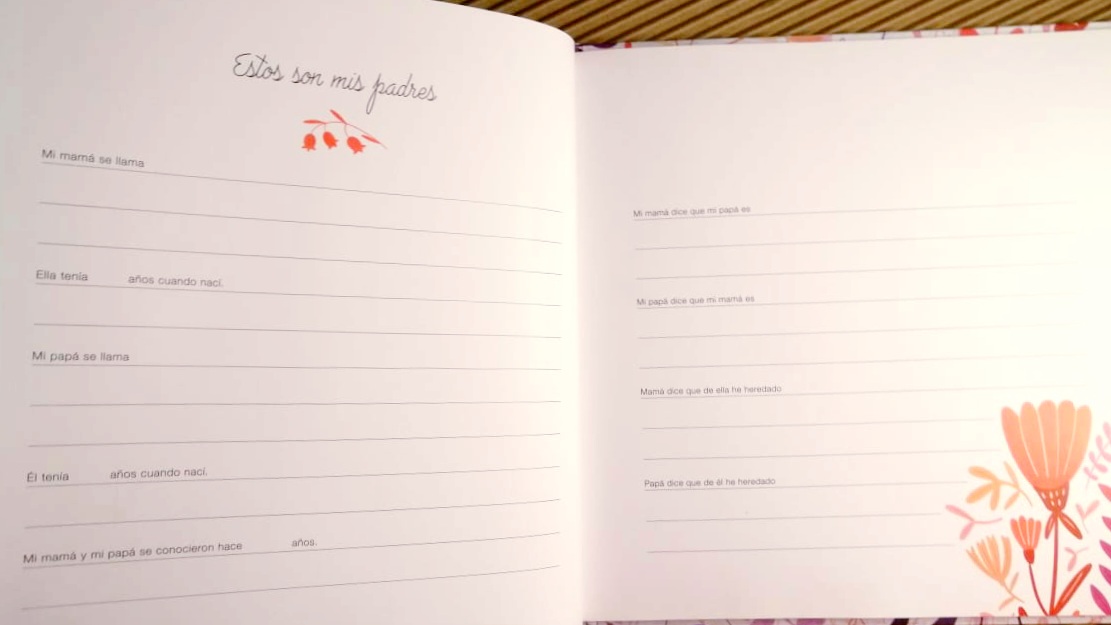 Estos son mis padres
Mi mamá se llama
Ella tenía años cuando nací.
Mi papá se llama
Él tenía años cuando nací.
Mi mamá y mi papá se conocieron hace años.
Mi mamá dice que mi papá es
Mi papá dice que mi mamá es
Mamá dice que de ella he heredado
Papá dice que de él he heredado